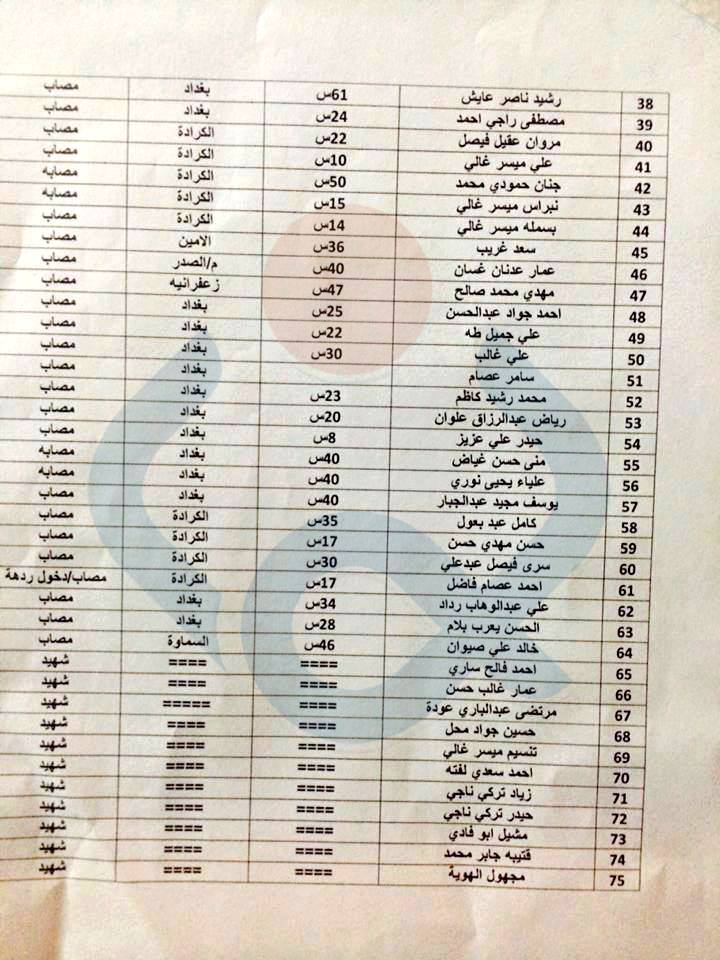 38 رشيد ناصر عايش 61س بغداد مصاب
39 مصطفى راجي احمد 24س بغداد مصاب
40 مروان عقيل فيصل 22س الكرادة مصاب
41 علي ميسر غالي 10س الكرادة مصاب
42 جنان حمودي محمد 50س الكرادة مصابه
43 نبراس ميسر غالي 15س الكرادة مصابه
44 بسمله ميسر غالي 14س الكرادة مصاب
45 سعد غريب 36س الامين مصاب
46 عمار عدنان غسان 40س م/الصدر مصاب
47 مهدي محمد صالح 47س زعفرانيه مصاب
48 احمد جواد عبدالحسن 25س بغداد مصاب
49 علي جميل طه 22س بغداد مصاب
50 علي غالب 30س بغداد مصاب
51 سامر عصام بغداد مصاب
52 محمد رشيد كاظم 23س بغداد مصاب
53 رياض عبدالرزاق علوان 20س بغداد مصاب
54 حيدر علي عزيز 8س بغداد مصاب
55 منى حسن غياض 40س بغداد مصابه
56 علياء يحيى نوري 40س بغداد مصابه
57 يوسف مجيد عبدالجبار 40س بغداد مصاب
58 كامل عبد بعول 35س الكرادة مصاب
59 حسن مهدي حسن 17س الكرادة مصاب
60 سرى فيصل عبدعلي 30س الكرادة مصاب
61 احمد عصام فاضل 17س الكرادة مصاب/دخول ردهة
62 علي عبدالوهاب رداد 34س بغداد مصاب
63 الحسن يعرب بلام 28س بغداد مصاب
64 خالد علي صيوان 46س السماوة مصاب
65 احمد فالح ساري ==== ==== شهيد
66 عمار غالب حسن ==== ==== شهيد
67 مرتضى عبدالباري عودة ==== ===== شهيد
68 حسين جواد محل ==== ==== شهيد
69 تنسيم ميسر غالي ==== ==== شهيد
70 احمد سعدي لفته ==== ==== شهيد
71 زياد تركي ناجي ==== ==== شهيد
72 حيدر تركي ناجي ==== ==== شهيد
73 مشيل ابو فادي ==== ==== شهيد
74 قتيبه جابر محمد ==== ==== شهيد
75 مجهول الهوية ==== ==== شهيد